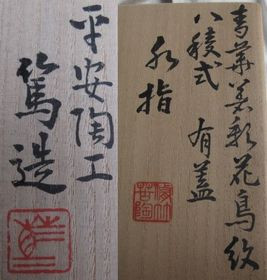 青華彩花鳥紋
八稜式 有蓋
水指
平安陶工
篤造